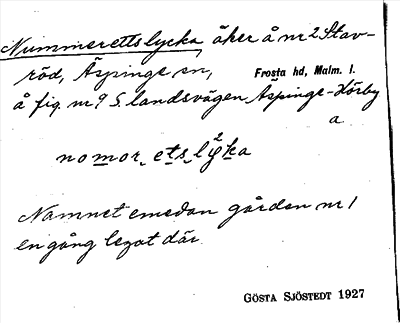 Nummerettslycka, åker å nr 2 Stav-
röd, Äspinge sn, Frosta hd, Malm. l.
å fig. nr 9 S. landsvägen Äspinge-Hörby
a.
nomor etslyka
Namnet emedan gården nr 1
en gång legat där.
GÖSTA SJÖSTEDT 1927